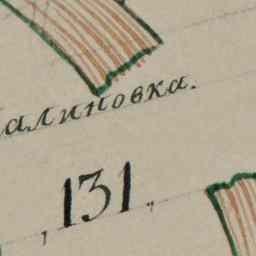 алиновка.
„131„